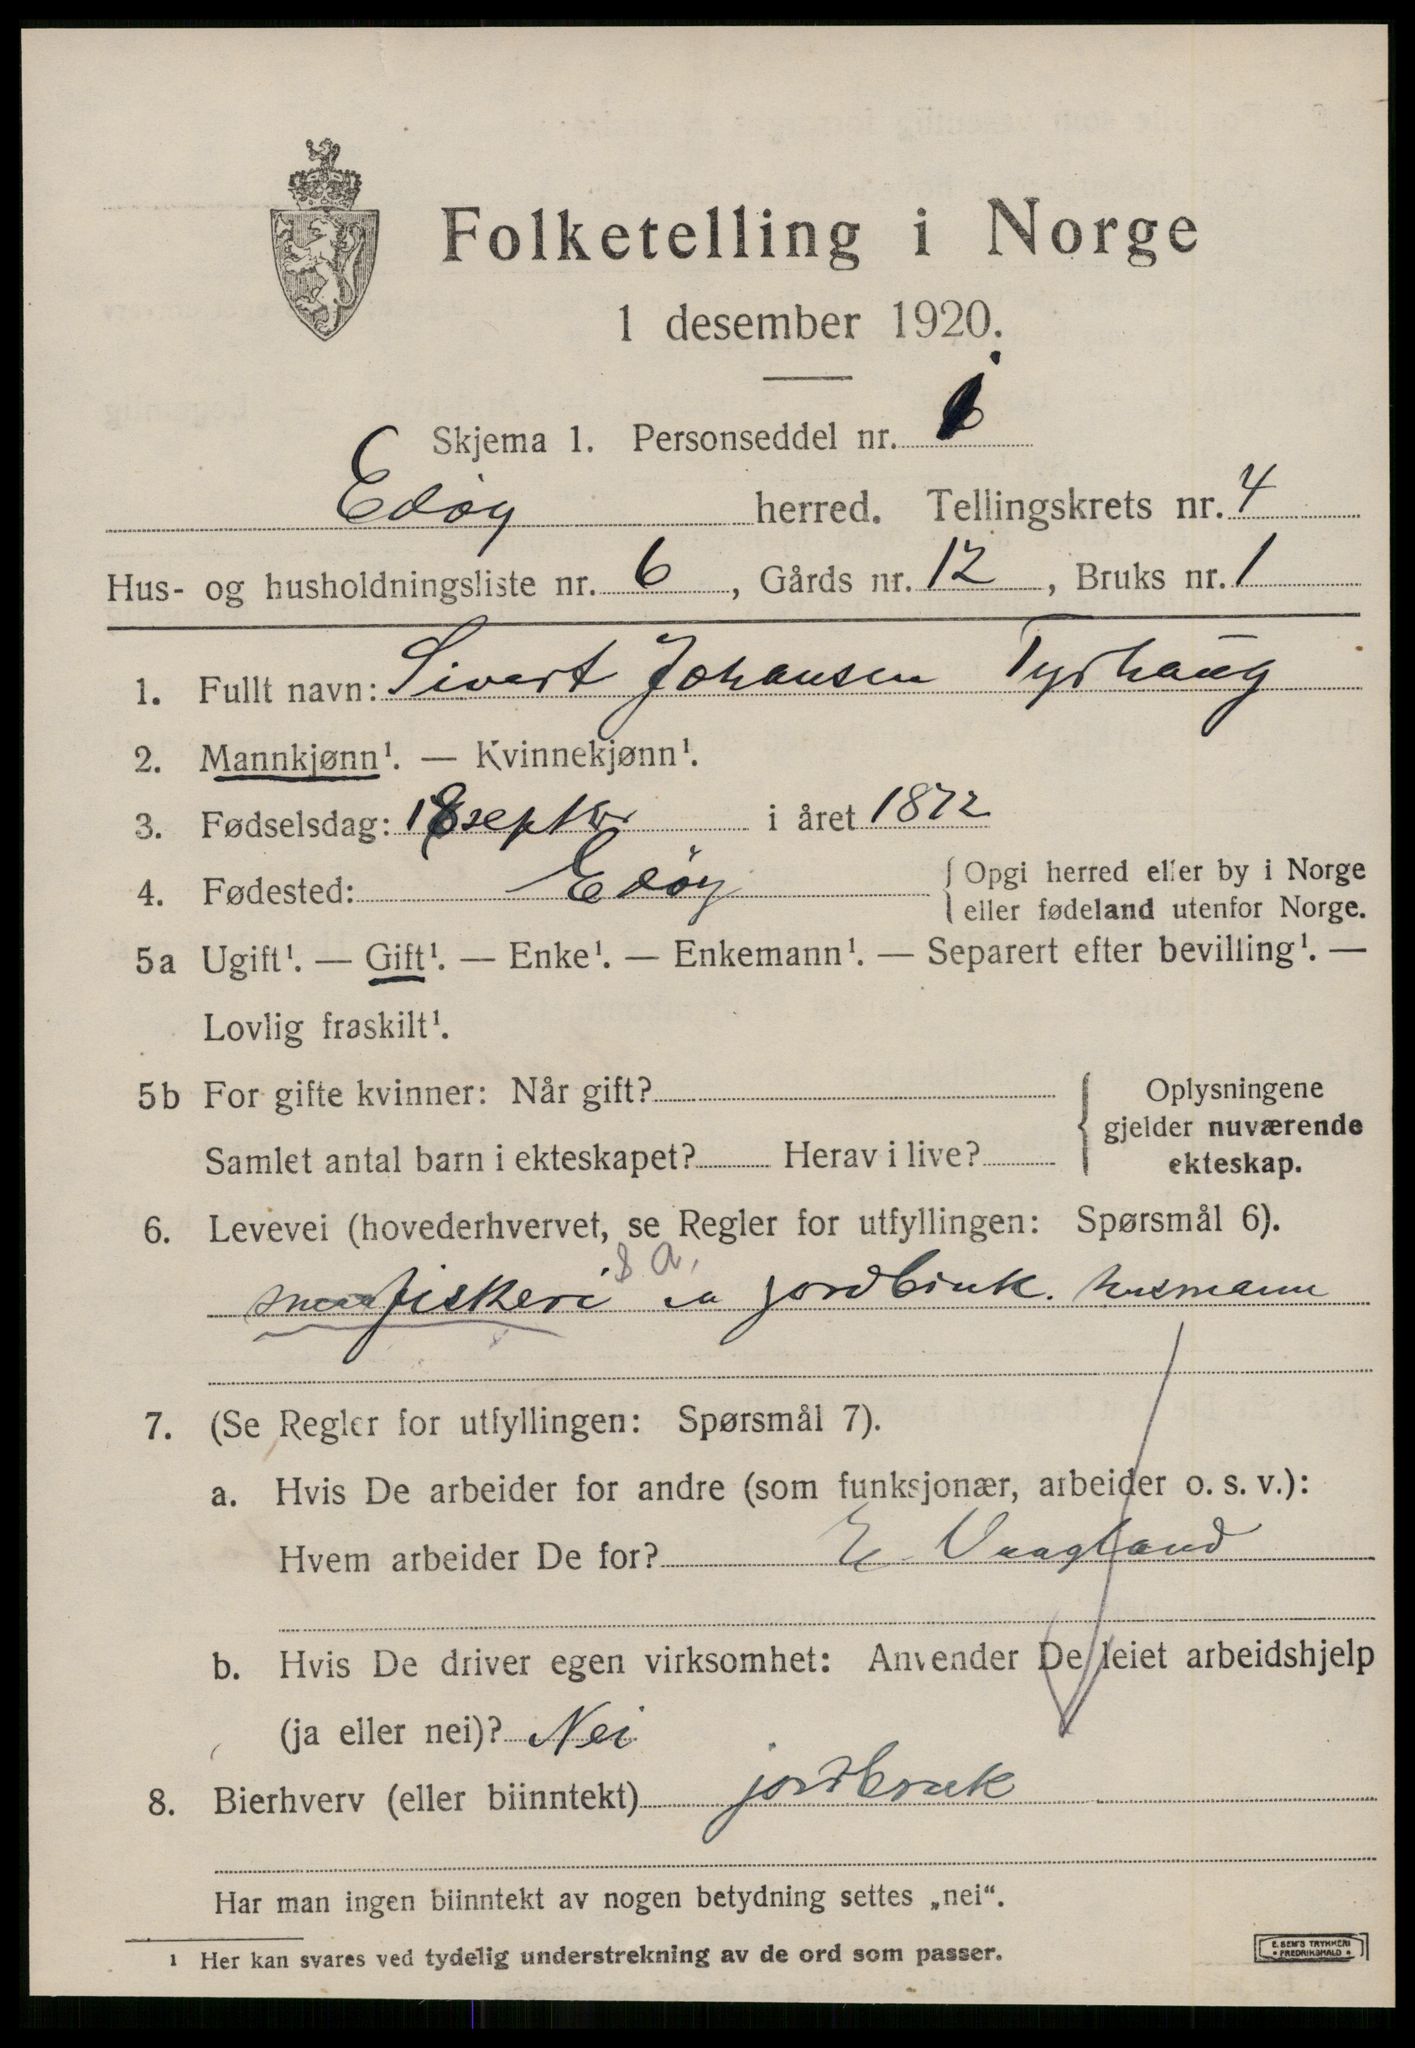 Folketelling i Norge
1 desember 1920.
Skjema 1. Personseddel nr.
Edöy herred. Tellingskrets nr. 4
Hus- og husholdningsliste nr. 6, Gårds nr. 12, Bruks nr. 1
1. Fullt navn: Sivert Johansen Tyrhaug
2. Mannkjønn¹. — Kvinnekjønn¹.
3. Fødselsdag: 18 septbr i året 1872
4. Fødested: Edöy { Opgi herred eller by i Norge
eller fødeland utenfor Norge.
5a Ugift¹. — Gift¹. — Enke¹. — Enkemann¹. — Separert efter bevilling¹. —
Lovlig fraskilt¹.
5b For gifte kvinner: Når gift? { Oplysningene
gjelder nuværende
Samlet antal barn i ekteskapet? Herav i live? ekteskap.
6. Levevei (hovederhvervet, se Regler for utfyllingen: Spørsmål 6).
fiskeri jordbruk. husmann
7. (Se Regler for utfyllingen: Spørsmål 7).
a. Hvis De arbeider for andre (som funksjonær, arbeider o. s. v.):
Hvem arbeider De for? E. Vaagland
b. Hvis De driver egen virksomhet: Anvender De leiet arbeidshjelp
(ja eller nei)? Nei
8. Bierhverv (eller biinntekt) jordbruk
Har man ingen biinntekt av nogen betydning settes „nei“.
¹ Her kan svares ved tydelig understrekning av de ord som passer.
E. SEM'S TRYKKERI
FREDRIKSHALD